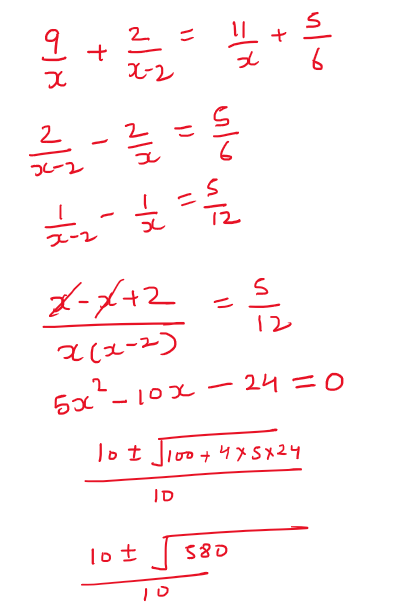 9/x + 2/(x-2) = 11/x + 5/6
2/(x-2) - 2/x = 5/6
1/(x-2) - 1/x = 5/12
(x - x + 2)/(x(x-2)) = 5/12
5x² - 10x - 24 = 0
(10 ± √(100 + 4×5×24))/10
(10 ± √580)/10